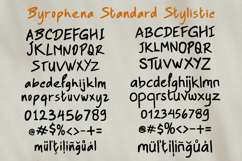 Byrophena Standard Stylistic
ABCDEFGHI
JKLMNOPQR
STUVWXYZ
abcdefghijklm
nopqrstuvwxyz
0123456789
@#$%<>-+=
müĺţįļīñğůáł
ABCDEFGHI
JKLMNOPQR
STUVWXYZ
abcdefghijklm
nopqrstuvwxyz
0123456789
@#$%<>-+=